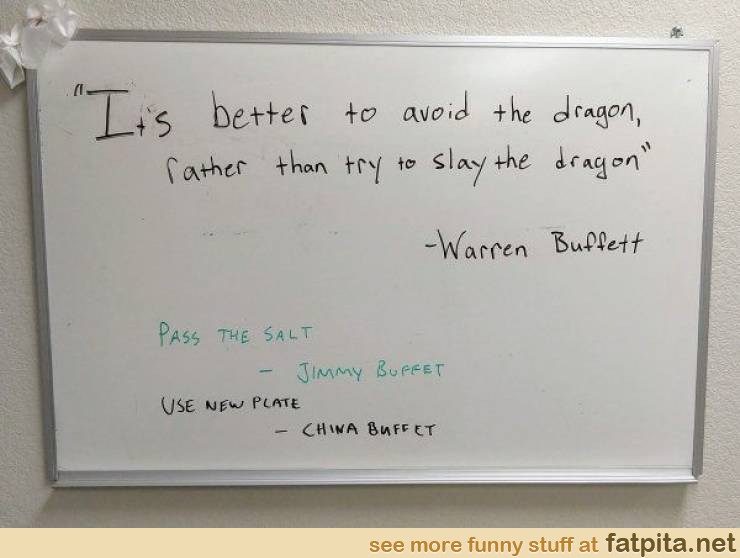 "It's better to avoid the dragon,
rather than try to slay the dragon"
-Warren Buffett
PASS THE SALT
- JIMMY BUFFET
USE NEW PLATE
- CHINA BUFFET
see more funny stuff at fatpita.net